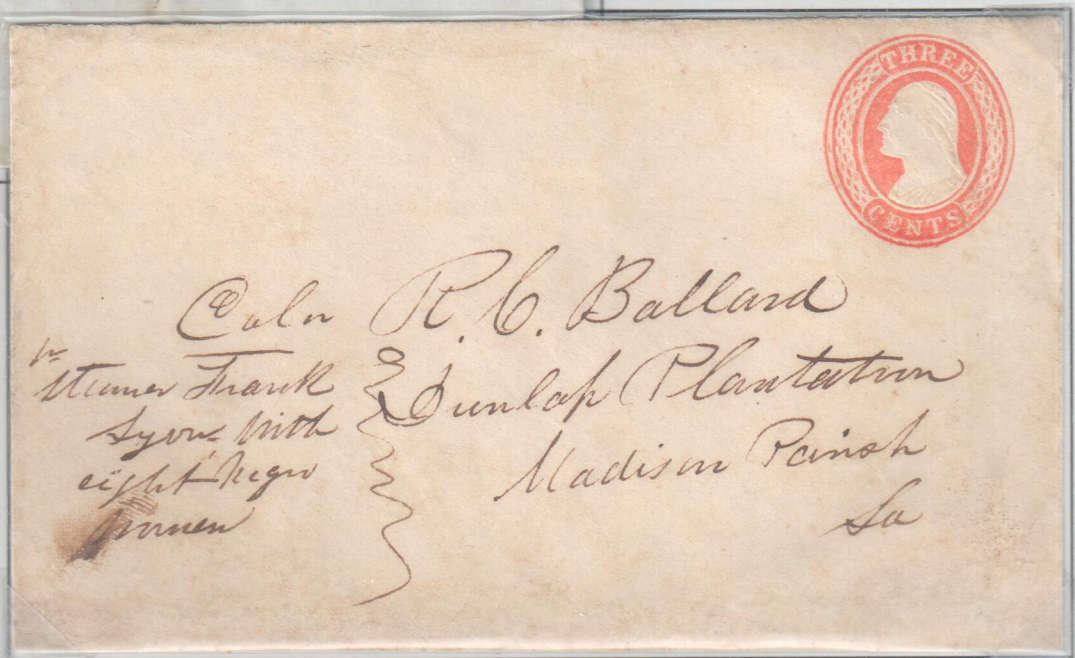 THREE
CENTS
Coln R. C. Ballard
Dunlap Plantation
Madison Parish
La
pr
Steamer Frank
Lyons With
eight Negro
women